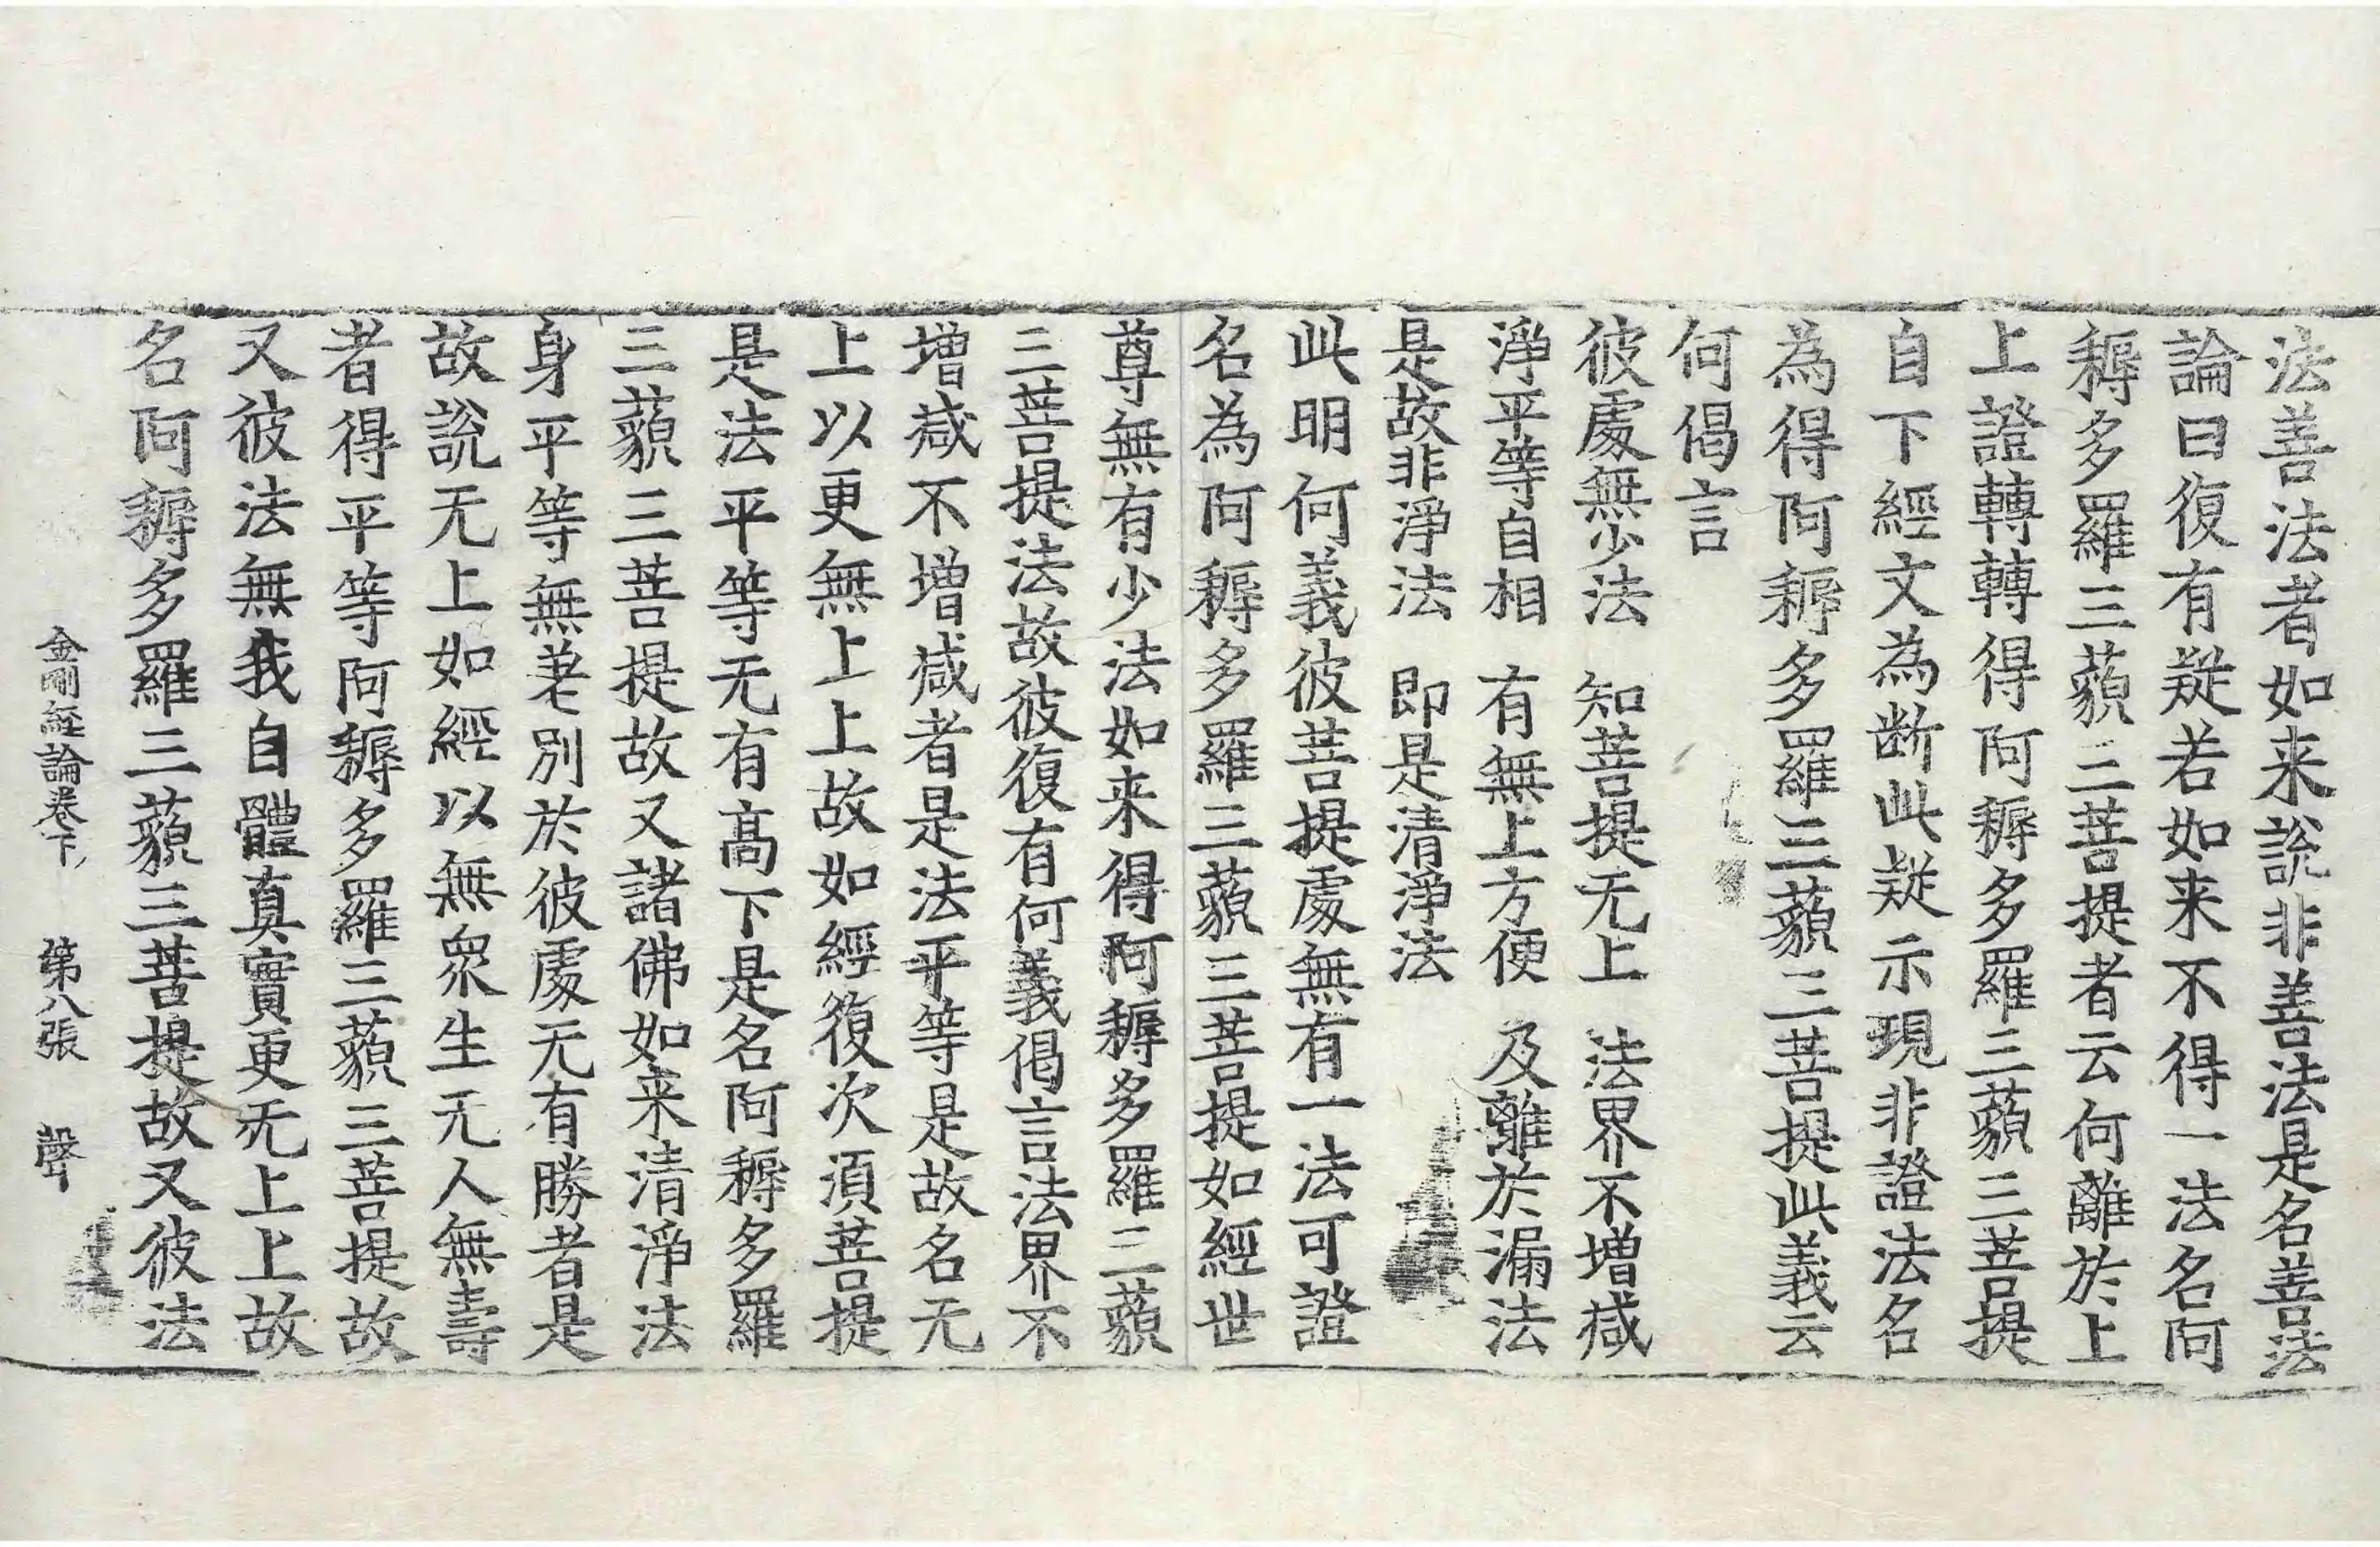 法善法者如来說非善法是名善法
論曰復有疑若如来不得一法名阿
耨多羅三藐三菩提者云何離於上
上證轉轉得阿耨多羅三藐三菩提
自下經文為断此疑示現非證法名
為得阿耨多羅三藐三菩提此義云
何偈言
彼處無少法　知菩提无上　法界不增減
淨平等自相　有無上方便　及離於漏法
是故非淨法　即是清淨法
此明何義彼菩提處無有一法可證
名為阿耨多羅三藐三菩提如經世
尊無有少法如来得阿耨多羅三藐
三菩提法故彼復有何義偈言法界不
增減不增減者是法平等是故名无
上以更無上上故如經復次湏菩提
是法平等无有髙下是名阿耨多羅
三藐三菩提故又諸佛如来清淨法
身平等無差別於彼處无有勝者是
故說无上如經以無眾生无人無壽
者得平等阿耨多羅三藐三菩提故
又彼法無我自體真實更无上上故
名阿耨多羅三藐三菩提故又彼法
金剛經論卷下　第八張　聲